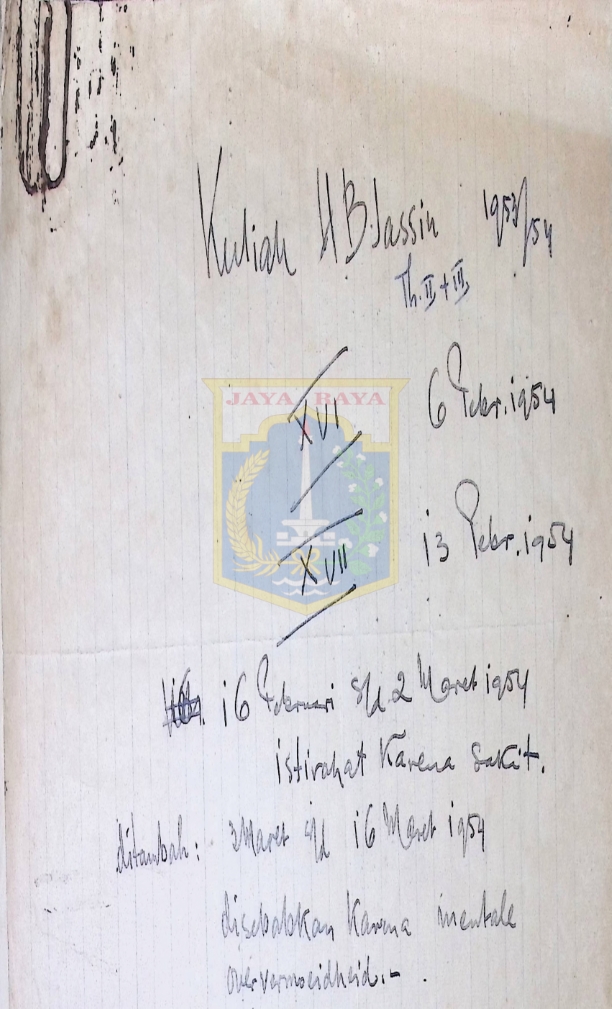 Kuliah H B Jassin 1953/54
Th. II + III
JAYA RAYA
XVI 6 Febr. 1954
XVII 13 Febr. 1954
16 Februari s/d 2 Maret 1954
istirahat karena sakit.
ditambah: 3 Maret s/d 16 Maret 1954
disebabkan karena mentale
oververmoeidheid.-